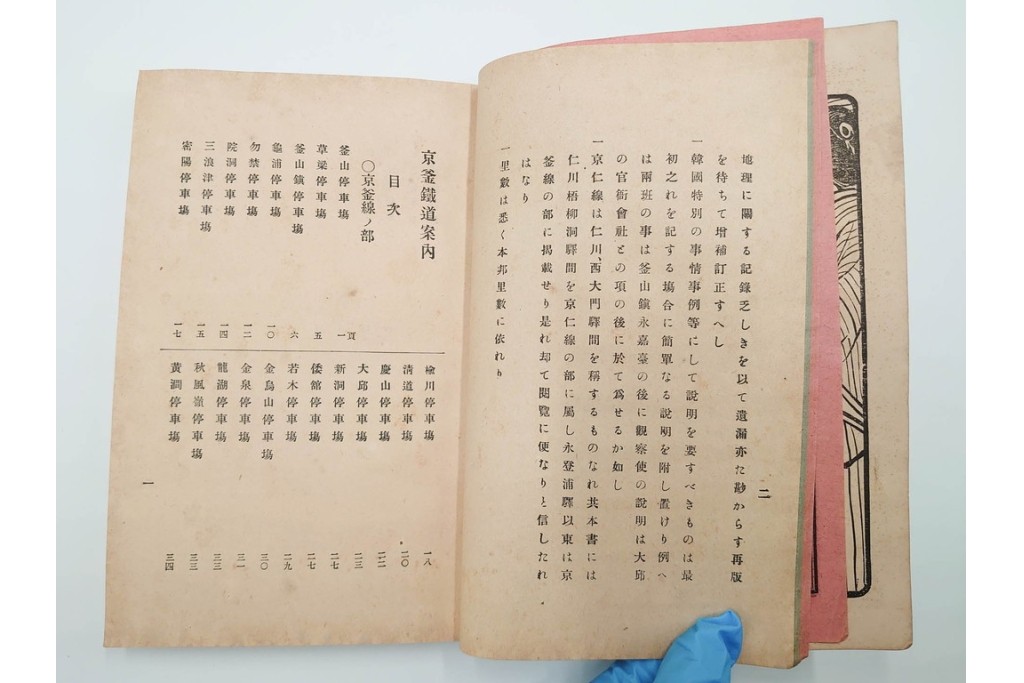 地理に關する記錄乏しきを以て遺漏亦た尠からす再版
を待ちて增補訂正すへし
一韓國特別の事情事例等にして說明を要すべきものは最
初之れを記する塲合に簡單なる說明を附し置けり例へ
は兩班の事は釜山鎭永嘉臺の後に觀察使の說明は大邱
の官衙會社との項の後に於て爲せるか如し
一京仁線は仁川、西大門驛間を稱するものなれ共本書には
仁川梧柳洞驛間を京仁線の部に屬し永登浦驛以東は京
釜線の部に揭載せり是れ却て閱覽に便なりと信したれ
はなり
一里數は悉く本邦里數に依れり
二
京釜鐵道案內
目次
〇京釜線ノ部
釜山停車塲 一頁
草梁停車塲 五
釜山鎭停車塲 六
龜浦停車塲 一〇
勿禁停車塲 一二
院洞停車塲 一四
三浪津停車塲 一五
密陽停車塲 一七
楡川停車塲 一八
淸道停車塲 二〇
慶山停車塲 二二
大邱停車塲 二三
新洞停車塲 二七
倭館停車塲 二七
若木停車塲 二九
金烏山停車塲 三〇
金泉停車塲 三一
龍湖停車塲 三三
秋風嶺停車塲 三三
黃澗停車塲 三四
一